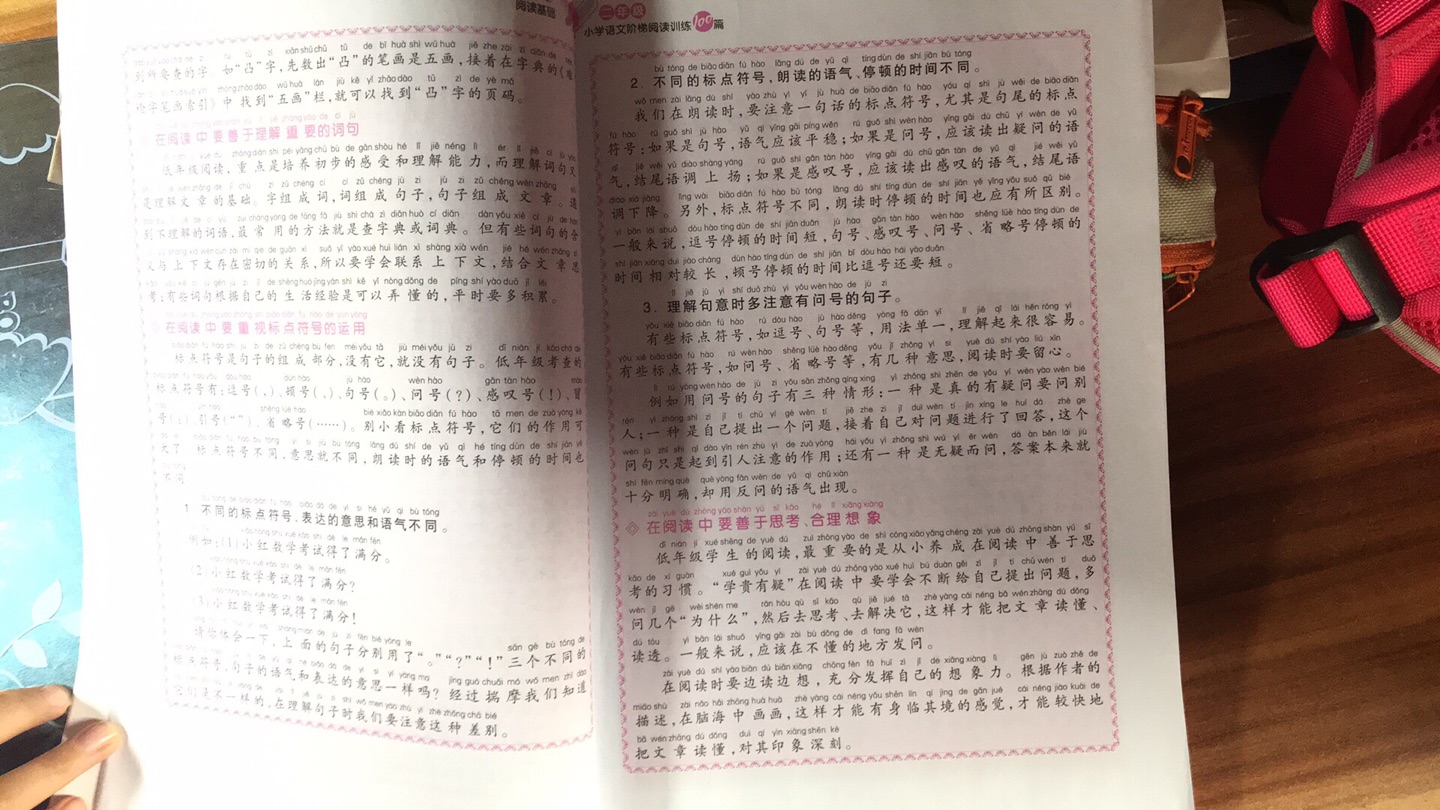 阅读基础
到所要查的字。如“凸”字,先数出“凸”的笔画是五画,接着在字典的《难
检字笔画索引》中找到“五画”栏,就可以找到“凸”字的页码。
在阅读中要善于理解重要的词句
低年级阅读,重点是培养初步的感受和理解能力,而理解词句又
是理解文章的基础。字组成词,词组成句子,句子组成文章。遇
到不理解的词语,最常用的方法就是查字典或词典。但有些词句的含
义与上下文存在密切的关系,所以要学会联系上下文,结合文章思
考;有些词句根据自己的生活经验是可以弄懂的,平时要多积累。
在阅读中要重视标点符号的运用
标点符号是句子的组成部分,没有它,就没有句子。低年级考查的
标点符号有:逗号(,)、顿号(、)、句号(。)、问号(?)、感叹号(!)、冒
号(:)、引号(“”)、省略号(……)。别小看标点符号,它们的作用可
大了。标点符号不同,意思就不同,朗读时的语气和停顿的时间也
不同。
1. 不同的标点符号,表达的意思和语气不同。
例如:(1)小红数学考试得了满分。
(2)小红数学考试得了满分?
(3)小红数学考试得了满分!
请你体会一下,上面的句子分别用了“。”“?”“!”三个不同的
标点符号,句子的语气和表达的意思一样吗?经过揣摩我们知道
它们是不一样的,在理解句子时我们要注意这种差别。
二年级
小学语文阶梯阅读训练100篇
2. 不同的标点符号,朗读的语气、停顿的时间不同。
我们在朗读时,要注意一句话的标点符号,尤其是句尾的标点
符号:如果是句号,语气应该平稳;如果是问号,应该读出疑问的语
气,结尾语调上扬;如果是感叹号,应该读出感叹的语气,结尾语
调下降。另外,标点符号不同,朗读时停顿的时间也应有所区别。
一般来说,逗号停顿的时间短,句号、感叹号、问号、省略号停顿的
时间相对较长,顿号停顿的时间比逗号还要短。
3. 理解句意时多注意有问号的句子。
有些标点符号,如逗号、句号等,用法单一,理解起来很容易。
有些标点符号,如问号、省略号等,有几种意思,阅读时要留心。
例如用问号的句子有三种情形:一种是真的有疑问要问别
人;一种是自己提出一个问题,接着自己对问题进行了回答,这个
问句只是起到引人注意的作用;还有一种是无疑而问,答案本来就
十分明确,却用反问的语气出现。
在阅读中要善于思考、合理想象
低年级学生的阅读,最重要的是从小养成在阅读中善于思
考的习惯。“学贵有疑”在阅读中要学会不断给自己提出问题,多
问几个“为什么”,然后去思考、去解决它,这样才能把文章读懂、
读透。一般来说,应该在不懂的地方发问。
在阅读时要边读边想,充分发挥自己的想象力。根据作者的
描述,在脑海中画画,这样才能有身临其境的感觉,才能较快地
把文章读懂,对其印象深刻。